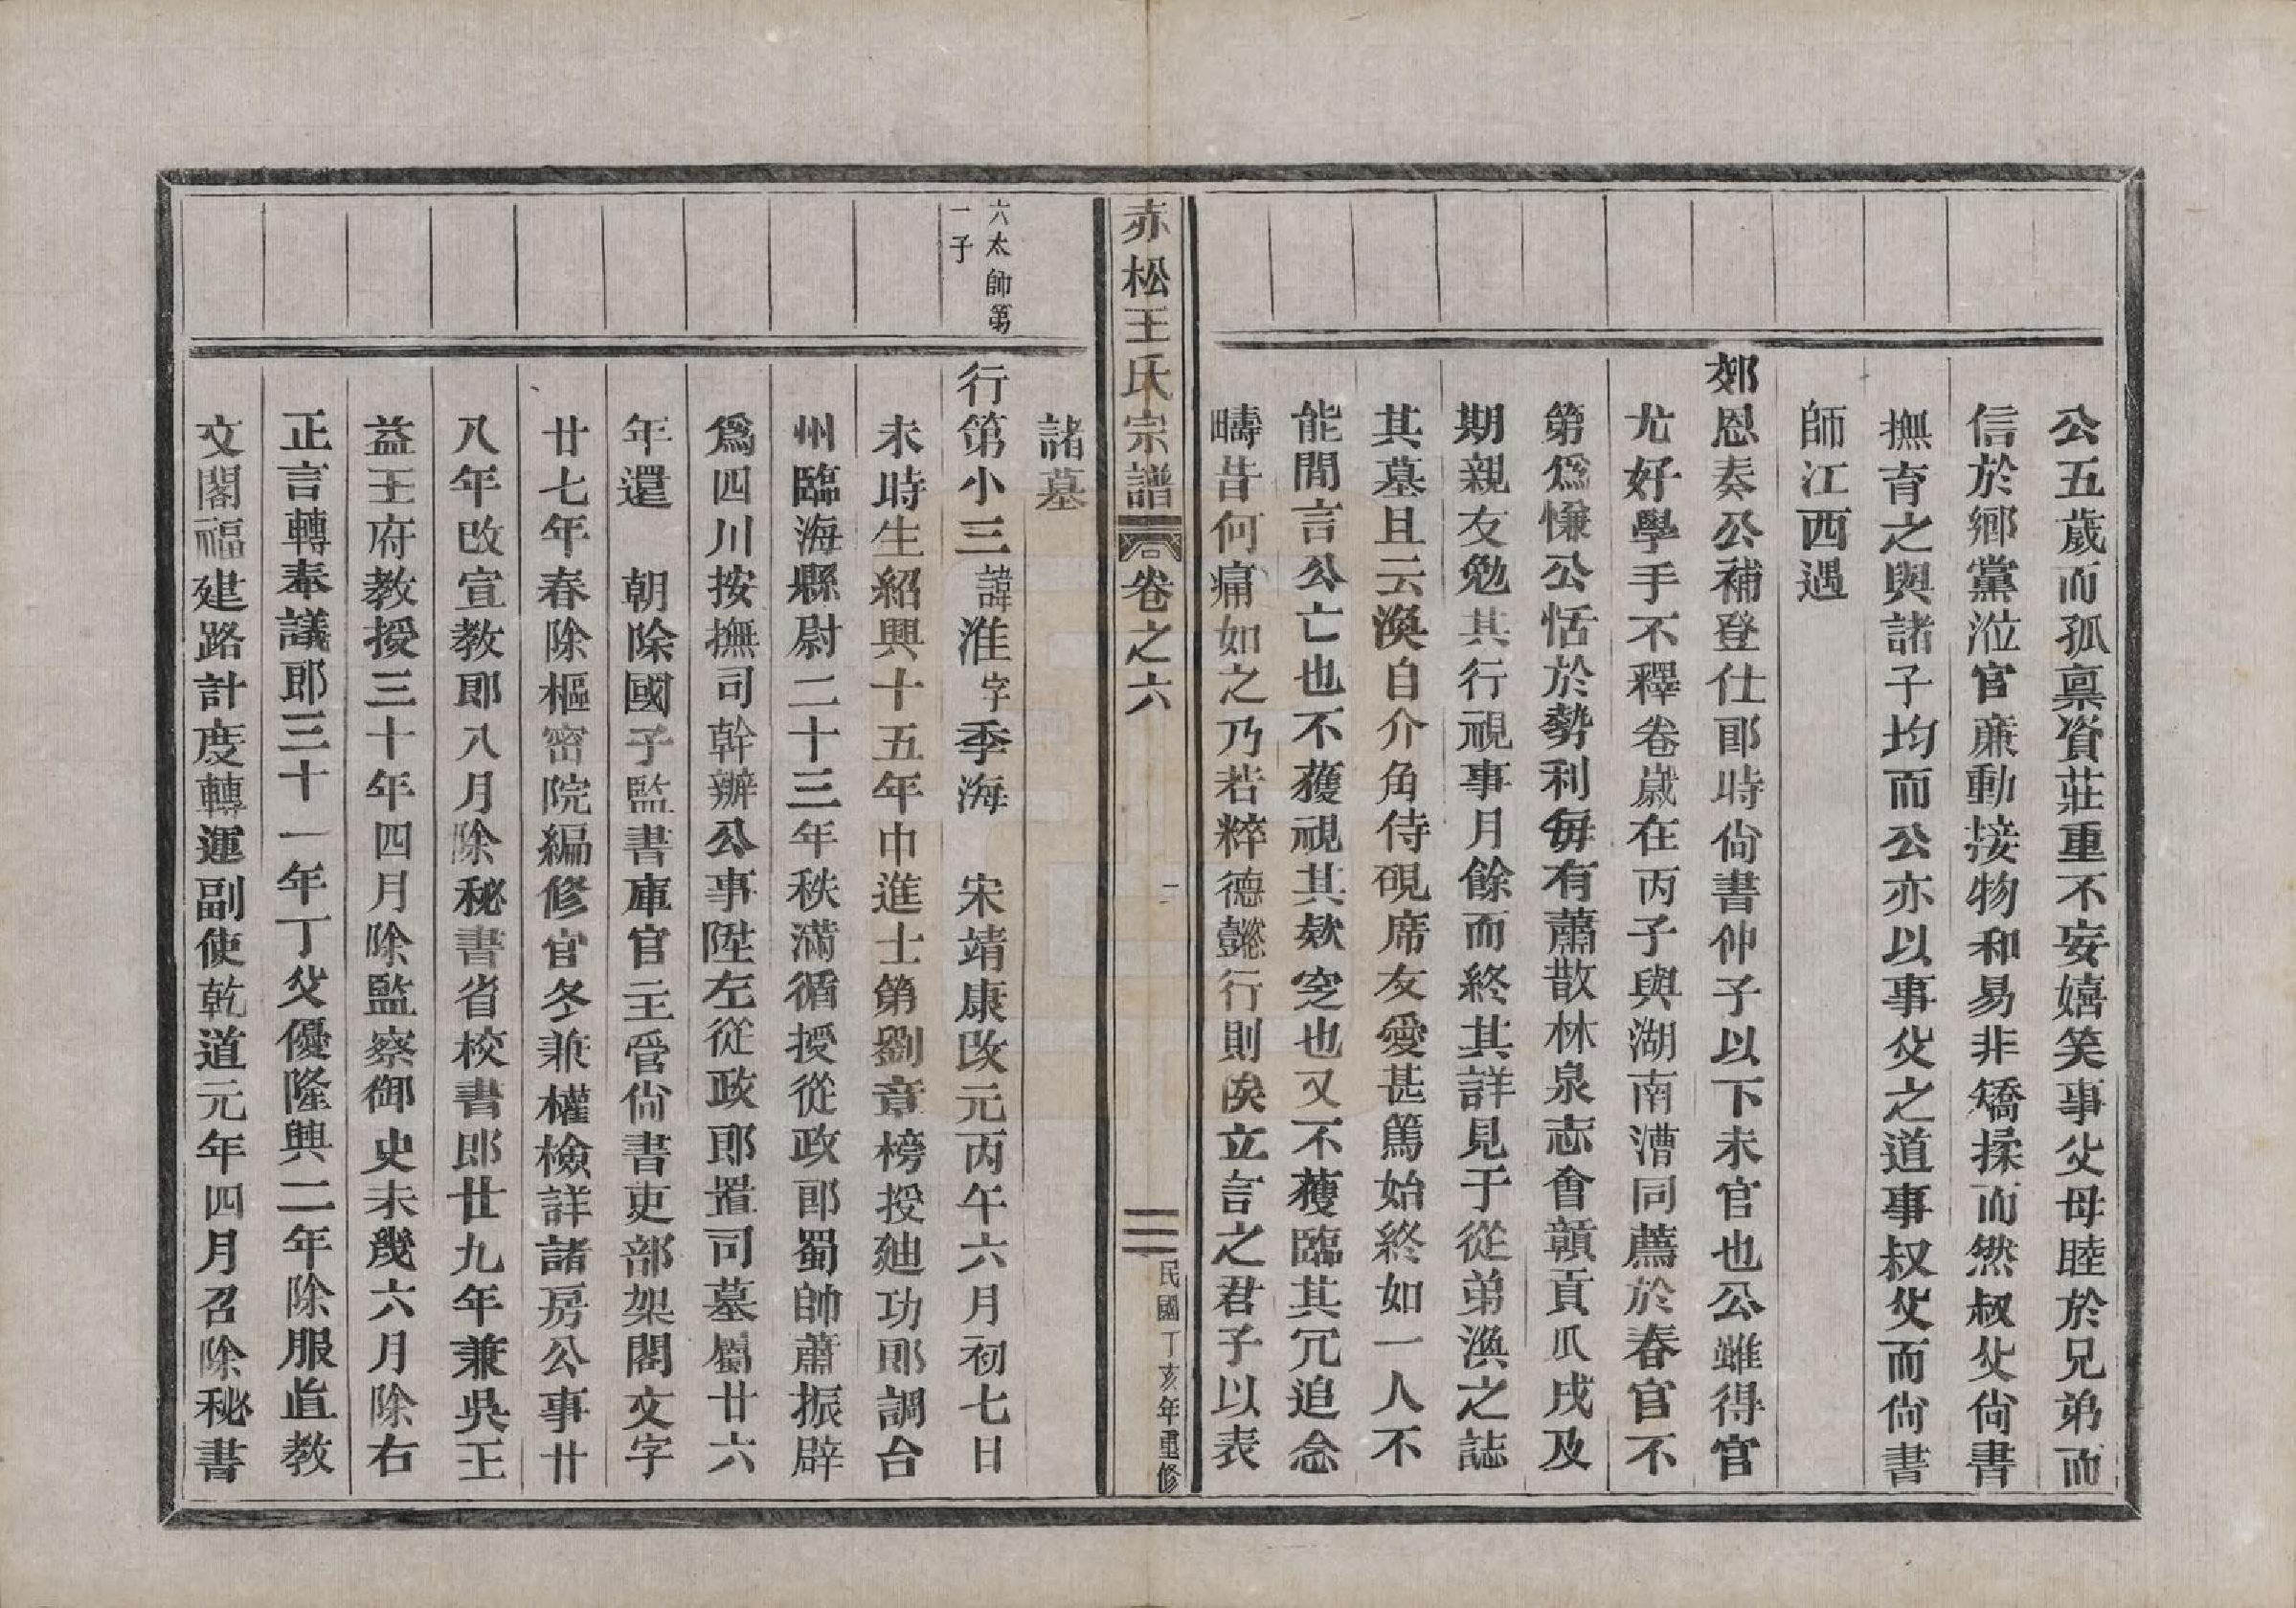 公五歲而孤稟資莊重不妄嬉笑事父母睦於兄弟而
信於鄉黨涖官廉勤接物和易非矯揉而然叔父尙書
撫育之與諸子均而公亦以事父之道事叔父而尙書
師江西遇
郊恩奏公補登仕郎時尙書仲子以下未官也公雖得官
尤好學手不釋卷嵗在丙子與湖南漕同薦於春官不
第爲慊公恬於勢利每有蕭散林泉志會贑貢瓜戌及
期親友勉其行視事月餘而終其詳見于從弟渙之誌
其墓且云渙自介角侍硯席友愛甚篤始終如一人不
能間言公亡也不獲視其欵窆也又不獲臨其冗追念
疇昔何痛如之乃若粹德懿行則俟立言之君子以表
赤松王氏宗譜
卷之六
二
三
民國丁亥年重修
諸墓
六太帥第
一子
行第小三諱淮字季海　宋靖康改元丙午六月初七日
未時生紹興十五年中進士第劉章榜授廸功郎調台
州臨海縣尉二十三年秩滿循授從政郎蜀帥蕭振辟
爲四川按撫司幹辦公事陞左從政郎置司墓屬廿六
年還　朝除國子監書庫官主管尙書吏部架閣文字
廿七年春除樞密院編修官冬兼權檢詳諸房公事廿
八年改宣教郎八月除秘書省校書郎廿九年兼吳王
益王府教授三十年四月除監察御史未幾六月除右
正言轉奉議郎三十一年丁父優隆興二年除服直敎
文閣福建路計度轉運副使乾道元年四月召除秘書